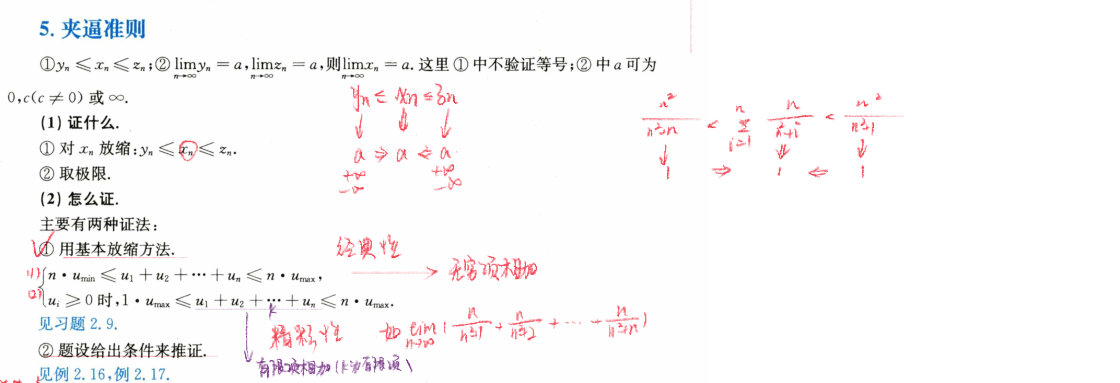 5. 夹逼准则
①yₙ ≤ xₙ ≤ zₙ;② lim yₙ = a, lim zₙ = a, 则 lim xₙ = a. 这里 ① 中不验证等号;② 中 a 可为
n→∞ n→∞ n→∞
0,c(c ≠ 0) 或 ∞.
yₙ ≤ xₙ ≤ zₙ
↓ ↓ ↓
a ⇒ a ⇐ a
+∞ +∞
-∞ -∞
n²/(n²+n) < Σ(i=1→n) n/(n²+i) < n²/(n²+1)
↓ ↓ ↓
1 ⇒ 1 ⇐ 1
(1) 证什么.
① 对 xₙ 放缩:yₙ ≤ xₙ ≤ zₙ.
② 取极限.
(2) 怎么证.
主要有两种证法:
① 用基本放缩方法.
经典性
(1) n · u_min ≤ u₁ + u₂ + ⋯ + uₙ ≤ n · u_max,
→ 无穷项相加
(2) uᵢ ≥ 0 时,1 · u_max ≤ u₁ + u₂ + ⋯ + uₙ ≤ n · u_max.
k
见习题 2.9.
精彩性 如 lim(n→∞) ( n/(n²+1) + n/(n²+2) + ⋯ + n/(n²+n) )
② 题设给出条件来推证.
有限项相加 (k为有限项)
见例 2.16,例 2.17.